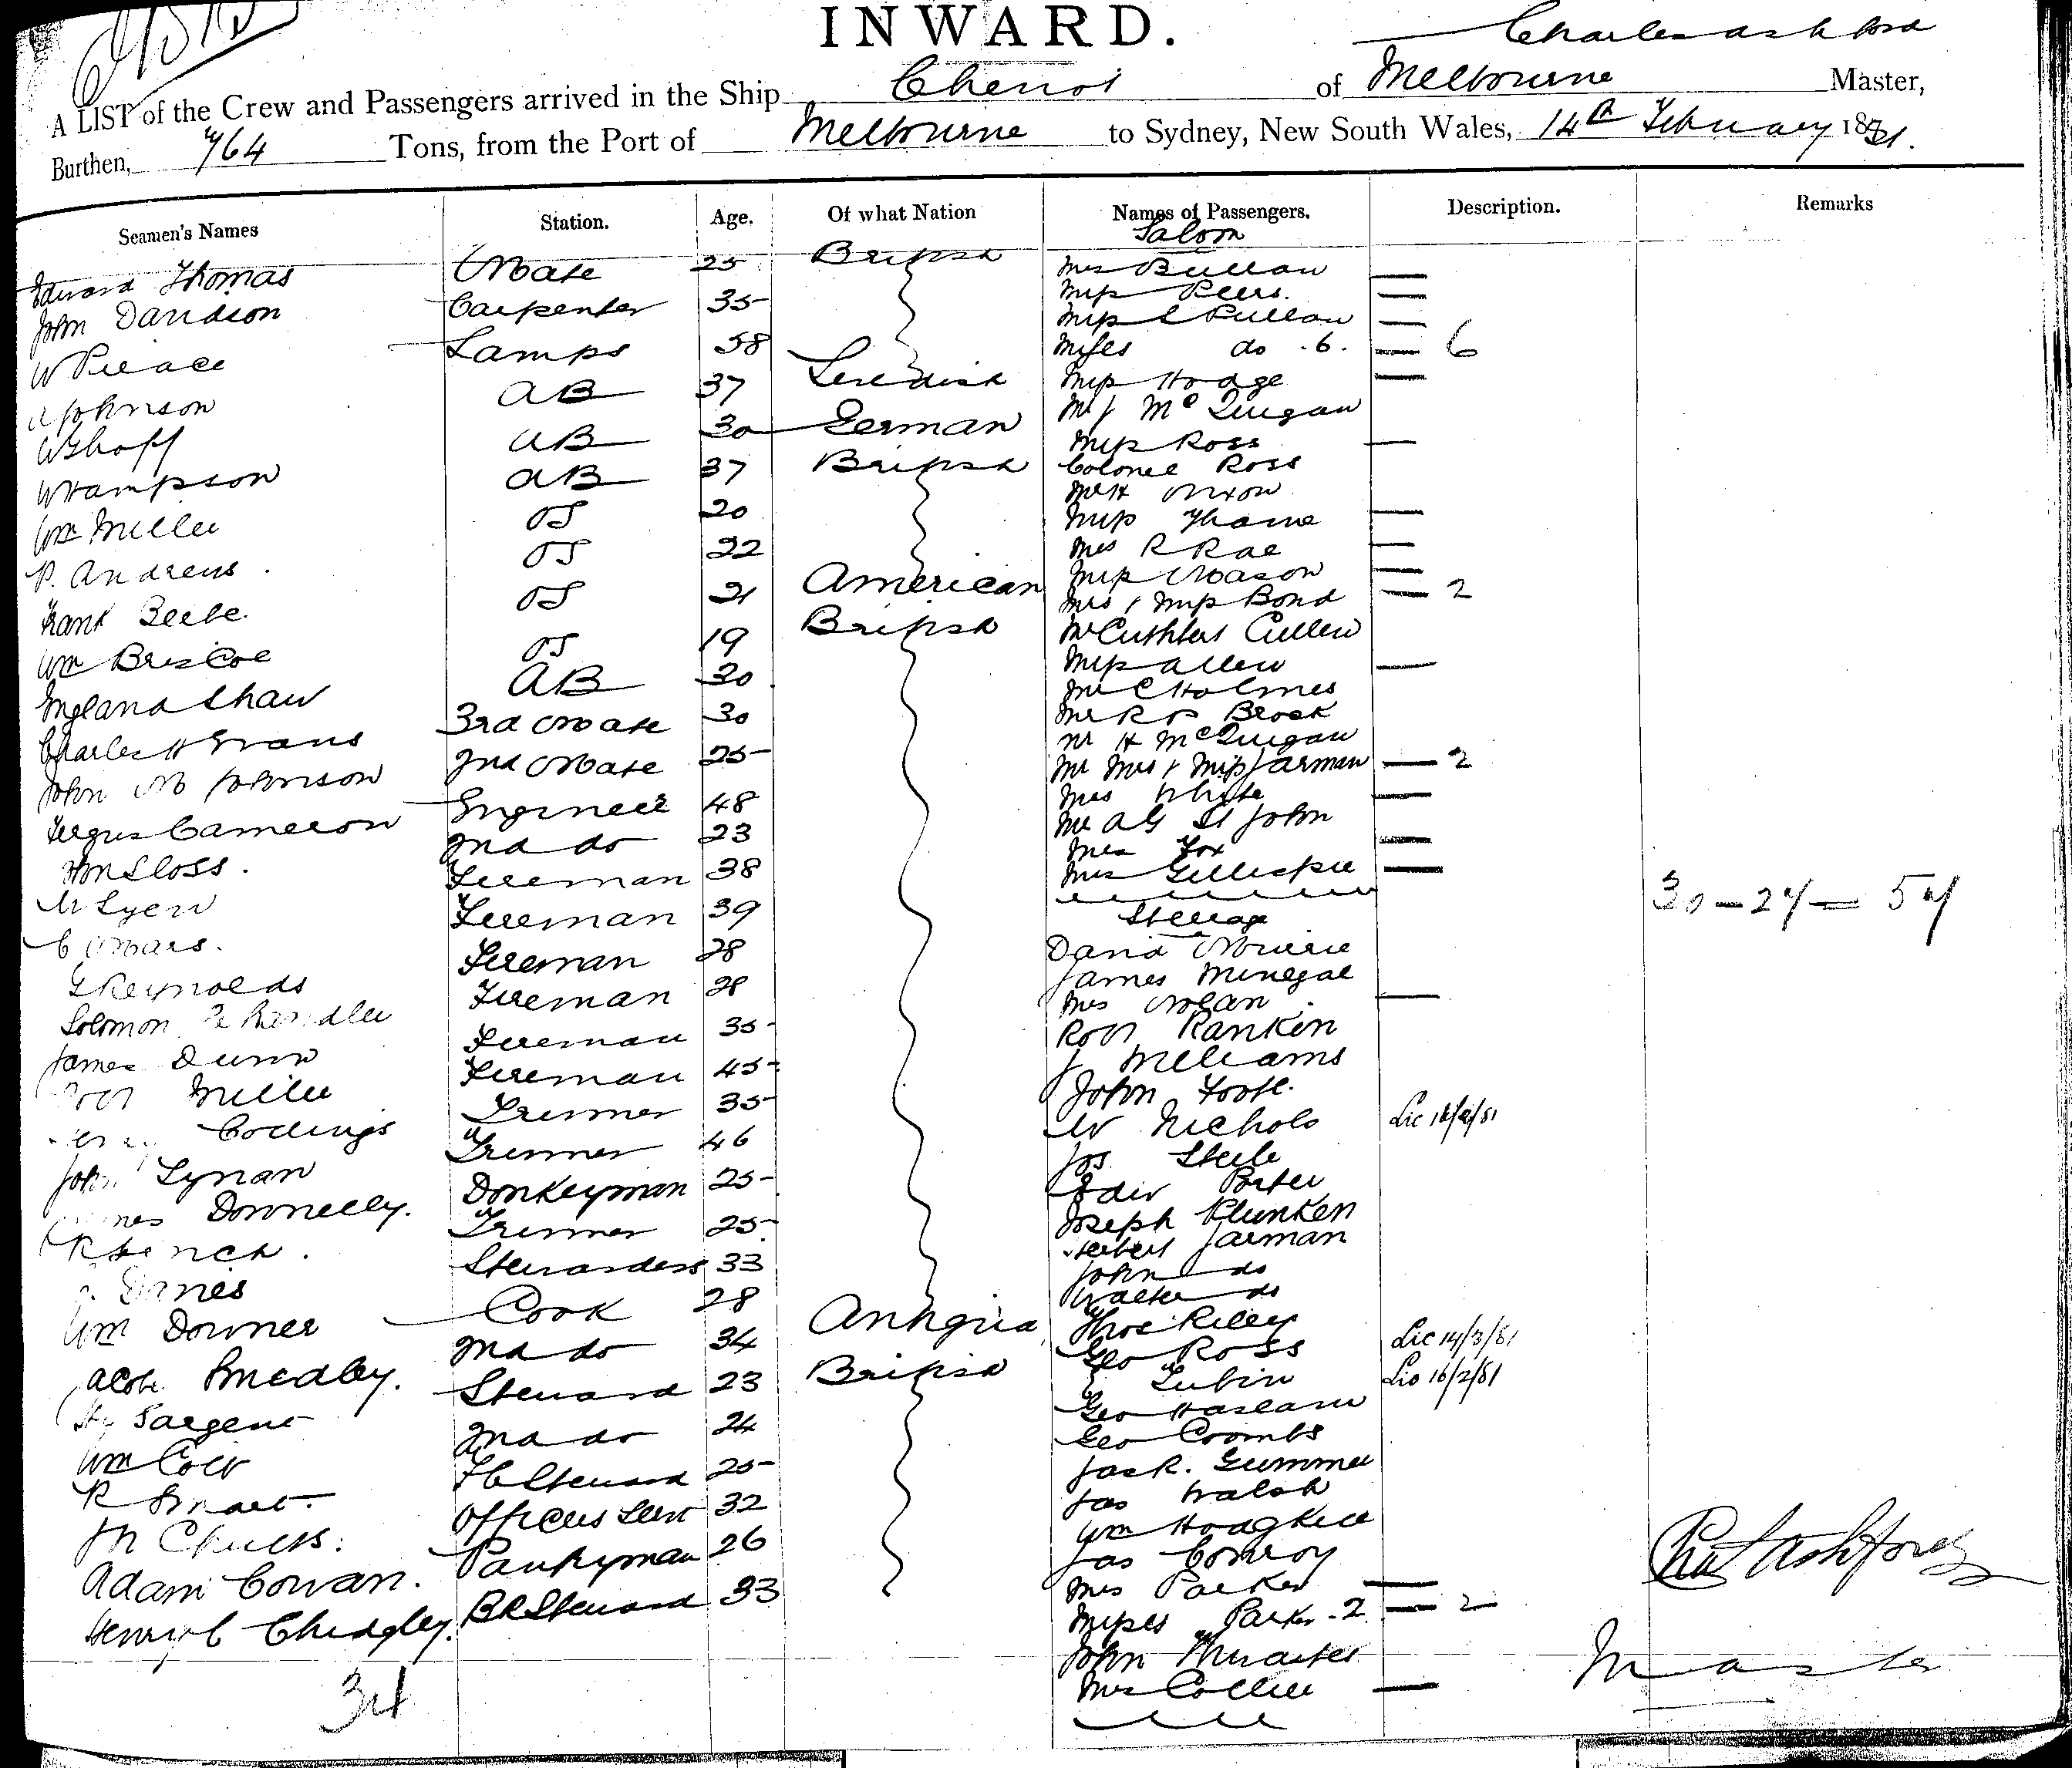 INWARD.
Charles Ashford
A LIST of the Crew and Passengers arrived in the Ship Cheviot of Melbourne Master,
Burthen, 764 Tons, from the Port of Melbourne to Sydney, New South Wales, 14th February 1881.
Seamen's Names Station. Age. Of what Nation Names of Passengers. Description. Remarks
Saloon
Edward Thomas Mate 25 British Mrs Bullan —
John Davidson Carpenter 35 Miss Peers. —
W Pierace Lamps 58 Miss Pullan —
Misses do .6. — 6
Johnson AB 37 Swedish Miss Hodge —
AB 30 German Mr J McGuigan
Miss Ross —
W Hampson AB 37 British Colonel Ross
Mr H Nixon
Wm Miller OS 20 Miss Thorne —
P. Andrews. OS 22 Mrs R Rae —
Miss Mason —
Frank Beebe. OS 21 American Mrs & Miss Bond — 2
Wm Briscoe OS 19 British Mr Cuthbert Cullen
England Shaw AB 30 Miss Allen —
Mr C Holmes
Charles H Evans 3rd Mate 30 Mr R P Brock
Mr H McGuigan
John M Johnson 2nd Mate 25 Mr Mrs & Miss Jarman — 2
Fergus Cameron Engineer 48 Mrs White —
Mr A G St John
Wm Sloss. 2nd do 23 Mrs Fox —
Lyen Fireman 38 Mrs Gillespie —
30 — 27 = 57
C Mars. Fireman 39 Steerage
G Reynolds Fireman 28 David
Solomon Chandler Fireman 28 James Minegal
Mrs Nolan —
James Dunn Fireman 35 Robt Rankin
Robt Miller Fireman 45 J Williams
Codings Trimmer 35 John Foote.
W Nichols Lic 16/2/81
John Lynan Trimmer 46 Jos Steele
James Donnelly. Donkeyman 25 Edw Porter
Trimmer 25 Joseph Plunken
Herbert Jarman
Stewardess 33 John do
Walter do
Wm Downer Cook 28 Antigua Thos Riley
Jacob Smedley. 2nd do 34 Geo Ross Lic 14/3/81
Hy Sargent Steward 23 British Lubin Lic 16/2/81
Geo Haslam
Wm Cow 2nd do 24 Geo Coombs
R Smart. F C Steward 25 Jas R. Gummer
Jas Walsh
Officers Serv 32 Wm Hodgkiss
Adam Cowan. Pantryman 26 Jas Conroy
Chas Ashford
Mrs Parker —
Henry C Chidgley. B R Steward 33 Misses Parker .2 — 2
John Thwaites
Master
34 Mrs Collier —